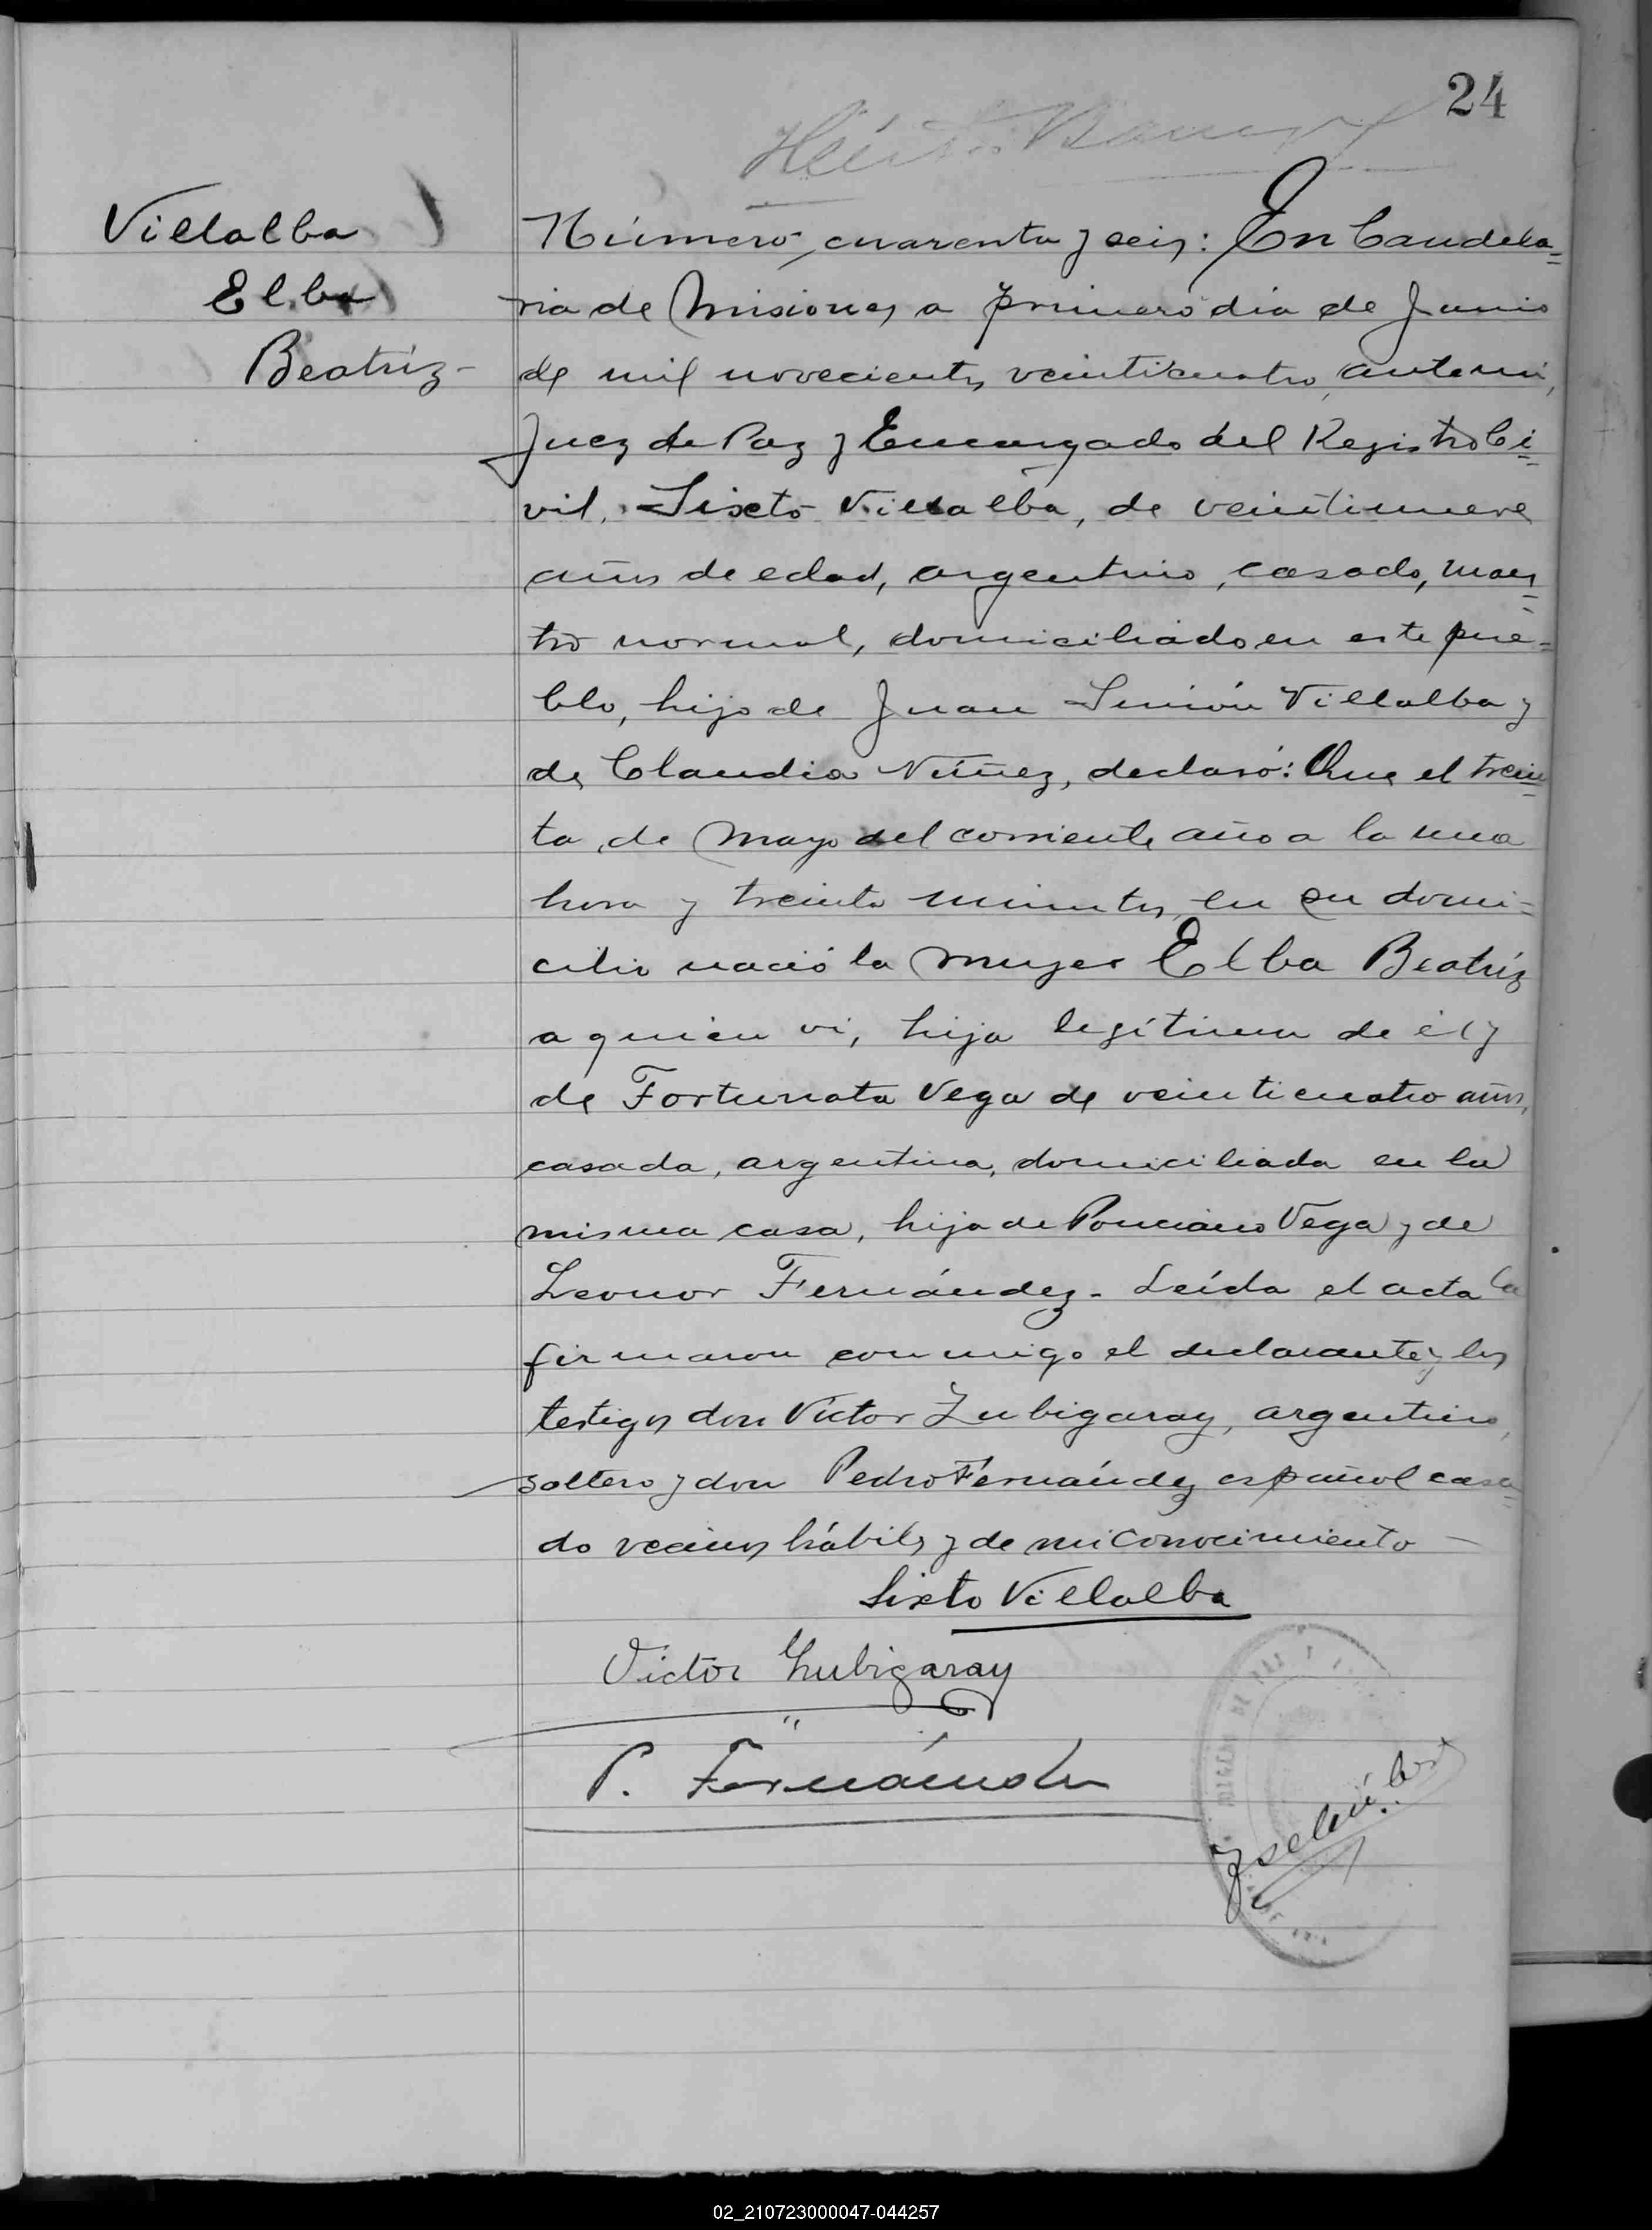 24
Villalba
Elba
Beatríz-
Número cuarenta y seis: En Candela=
ria de Misiones a primero dia de Junio
de mil novecientos veinticuatro, ante mi,
Juez de Paz y Encargado del Registro Ci=
vil, Sixto Villalba, de veintinueve
años de edad, argentino, casado, maes=
tro normal, domiciliado en este pue=
blo, hijo de Juan Simón Villalba y
de Claudia Núñez, declaró: Que el trein=
ta de Mayo del corriente año a la una
hora y treinta minutos, en su domi=
cilio nació la mujer Elba Beatríz
a quien vi, hija legítima de él y
de Fortunata Vega de veinticuatro años,
casada, argentina, domiciliada en la
misma casa, hija de Ponciano Vega y de
Leonor Fernández- Leída el acta la
firmaron conmigo el declarante y los
testigos don Víctor Zubigaray, argentino,
soltero y don Pedro Fernández español casa=
do vecinos hábiles y de mi conocimiento
Sixto Villalba
Victor Zubigaray
P. Fernández
02_210723000047-044257